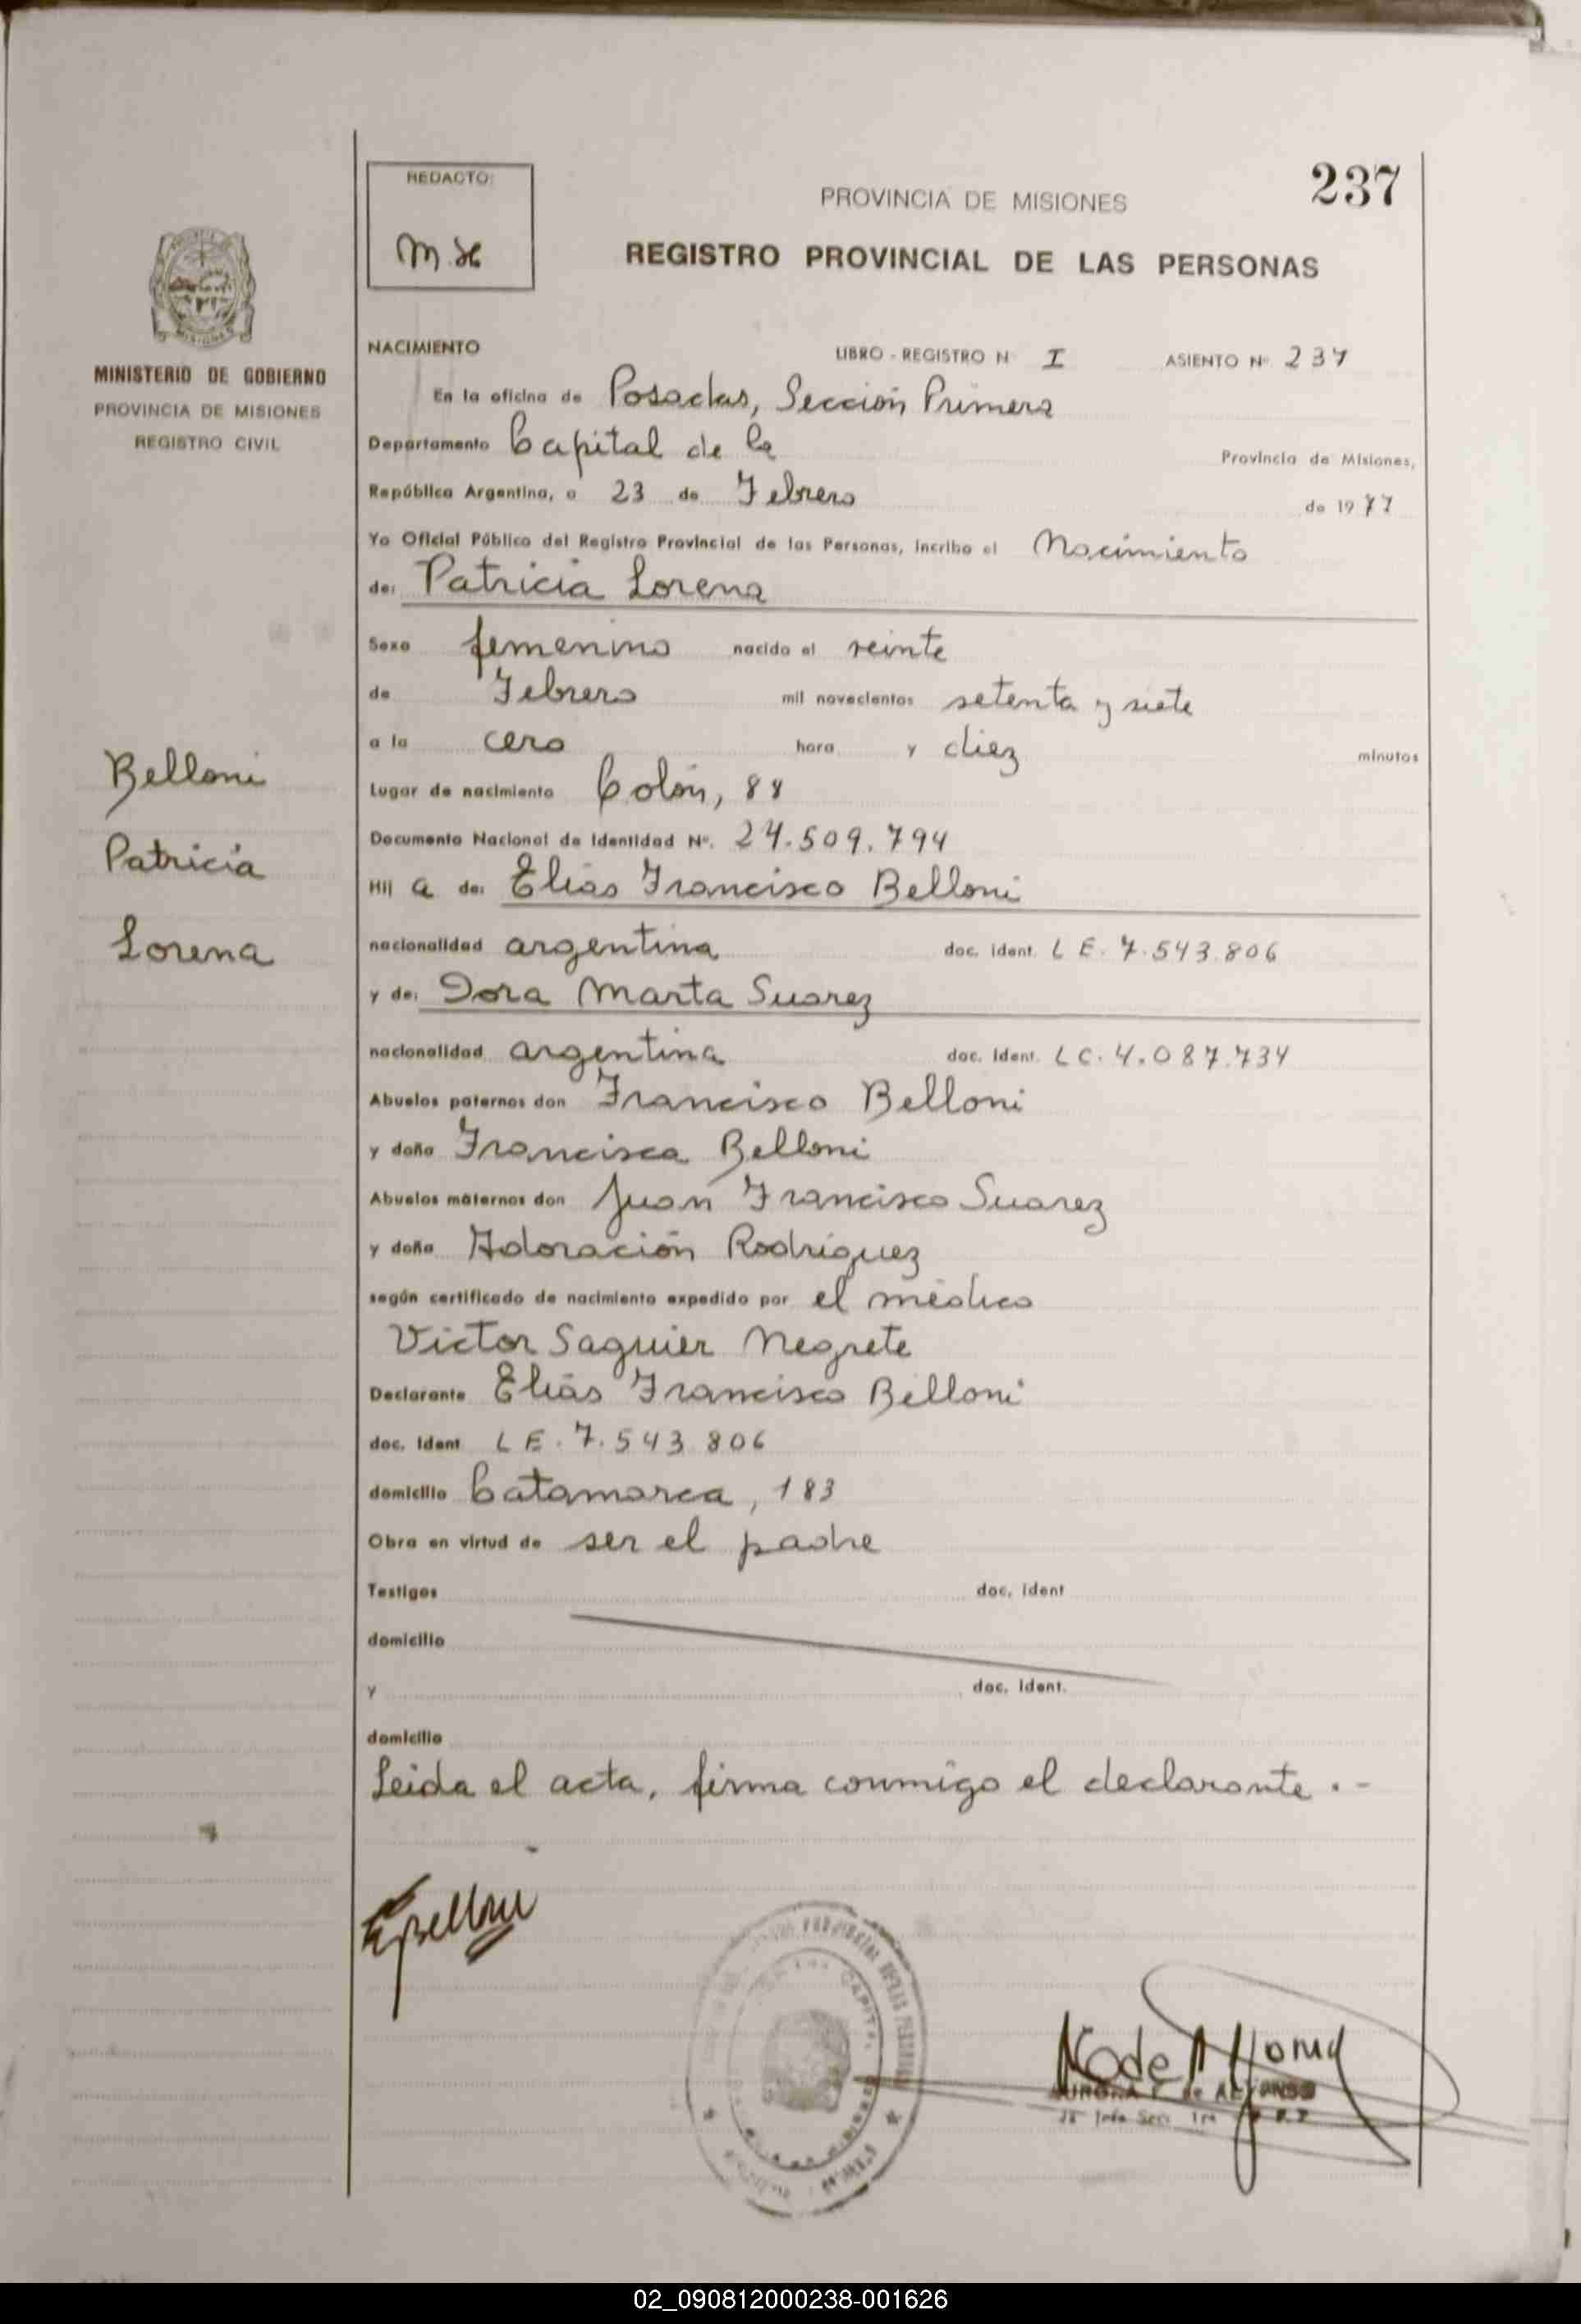 REDACTO:
PROVINCIA DE MISIONES
237
REGISTRO PROVINCIAL DE LAS PERSONAS
MINISTERIO DE GOBIERNO
PROVINCIA DE MISIONES
REGISTRO CIVIL
NACIMIENTO LIBRO - REGISTRO N I ASIENTO Nº 237
En la oficina de Posadas, Sección Primera
Departamento Capital de la Provincia de Misiones,
República Argentina, a 23 de Febrero de 1977
Yo Oficial Público del Registro Provincial de las Personas, incribo el Nacimiento
de: Patricia Lorena
Sexo femenino nacido el veinte
de Febrero mil novecientos setenta y siete
a la cero hora y diez minutos
Lugar de nacimiento Colón, 88
Documento Nacional de Identidad Nº. 24.509.794
Hij a de: Elías Francisco Belloni
nacionalidad argentina doc. ident. L E. 7.543.806
y de: Dora Marta Suarez
nacionalidad argentina doc. ident. L C. 4.087.734
Abuelos paternos don Francisco Belloni
y doña Francisca Belloni
Abuelos maternos don Juan Francisco Suarez
y doña Adoración Rodríguez
según certificado de nacimiento expedido por el médico
Victor Saguier Negrete
Declarante Elías Francisco Belloni
doc. ident L E. 7.543.806
domicilio Catamarca, 183
Obra en virtud de ser el padre
Testigos doc. ident
domicilio
y doc. ident.
domicilio
Leida el acta, firma conmigo el declarante.-
Belloni
Patricia
Lorena
EBelloni
02_090812000238-001626